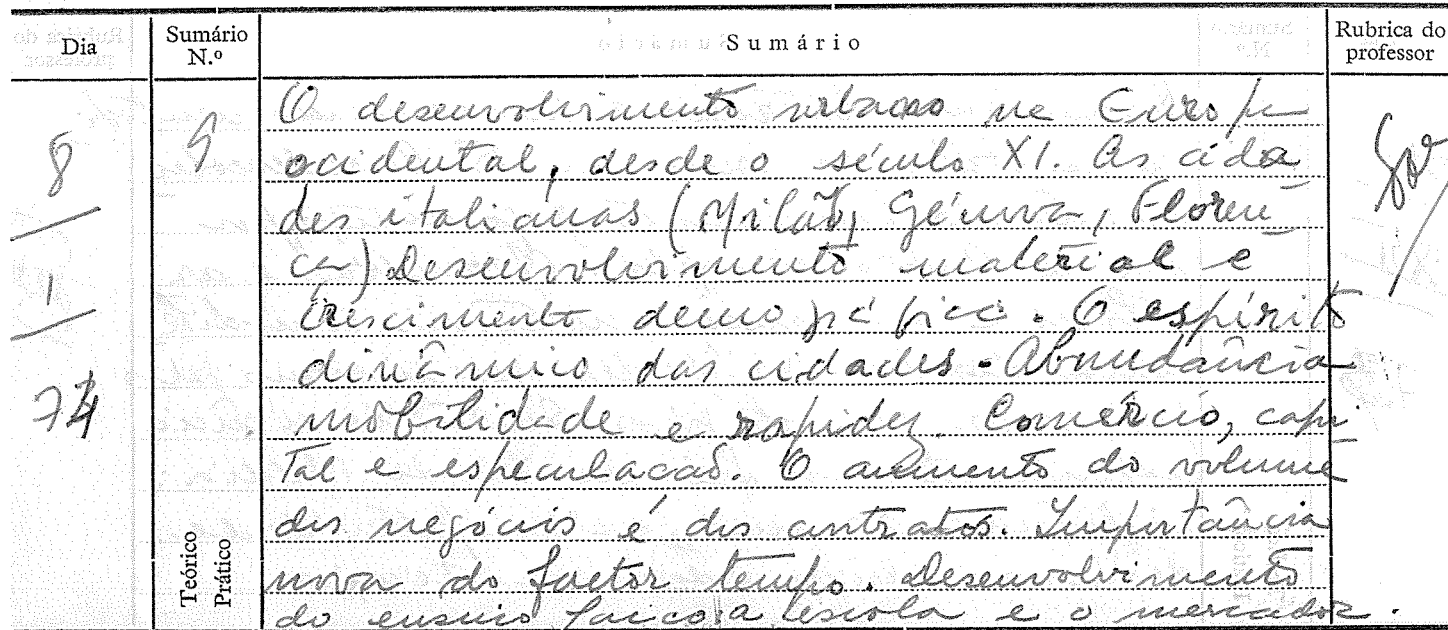 Dia Sumário N.º Sumário Rubrica do professor
8 9 O desenvolvimento urbano na Europa
ocidental, desde o século XI. As cida
1 des italianas (Milão, Génova, Floren
ça) Desenvolvimento material e
74 crescimento demográfico. O espírito
dinâmico das cidades - Abundância
mobilidade e rapidez. Comércio, capi
tal e especulação. O aumento do volume
dos negócios e dos contratos. Importância
nova do factor tempo. Desenvolvimento
do ensino laico: a escola e o mercador.
Teórico
Prático